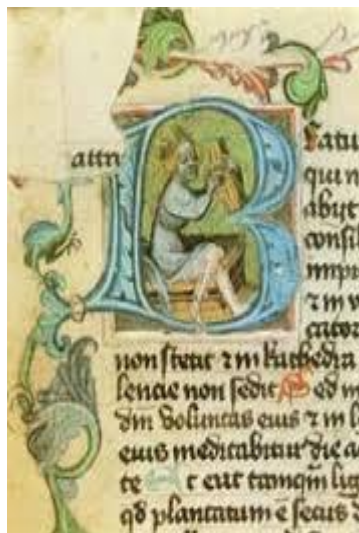 Beatu
qui n
abijt
consil
impi
⁊ in v
cator
non stetit ⁊ in kathedra
lencie non sedit Sed in
dm̄ voluntas eius ⁊ in l
eius meditabitur die ac
te Et erit tamqm̄ lig
qd̄ plantatum ē secus d